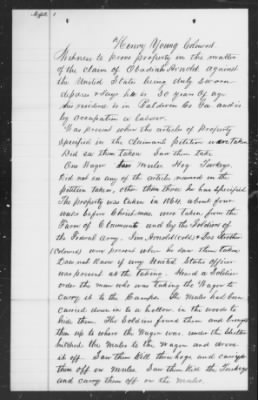 Henry Young Colored
Witness to prove property in the matter
of the claim of Obadiah Arnold against
the United States being duly sworn
deposes & says he is 30 years of age
his residence is in Baldwin Co Ga and is
by occupation a labour.
Was present when the articles of Property
specified in the Claimants petition were taken
Did see them taken Saw them take
One Wagon Mules Hog Turkeys.
Did not see any of the articles named in the
petition taken, other than those he has specified
The property was taken in 1864. about four
weeks before Christmas were taken from the
Farm of Claimants and by the Soldiers of
the Federal Army. Arnold (Cold)
(Colored) were present when he saw them taken
Does not know if any United States Officer
was present at the taking. Heard a Soldier
order the man who was taking the Wagon to
carry it to the Camps. The Mules had been
carried down in to a hollow in the woods to
hide them. The Soldiers found them and brought
them up to where the Wagon was under the Shelter
hitched the Mules to the Wagon and drove
it off. Saw them kill the hogs and carry
them off on Mules. Saw them kill the Turkeys
and carry them off on the mules.